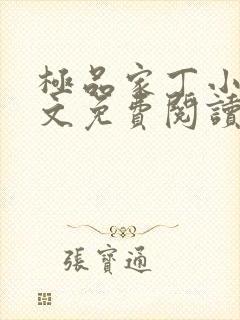 極品家丁小
文免費閱讀
張寶通